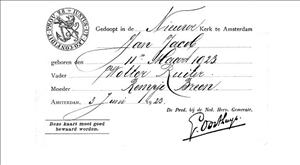 Gedoopt in de Nieuwe Kerk te Amsterdam
Jan Jacob
geboren den 11n Maart 1923
Vader Wolter Ruiter
Moeder
AMSTERDAM, 3 Juni 1923.
De Pred. bij de Ned. Herv. Gemeente,
Deze kaart moet goed
bewaard worden.